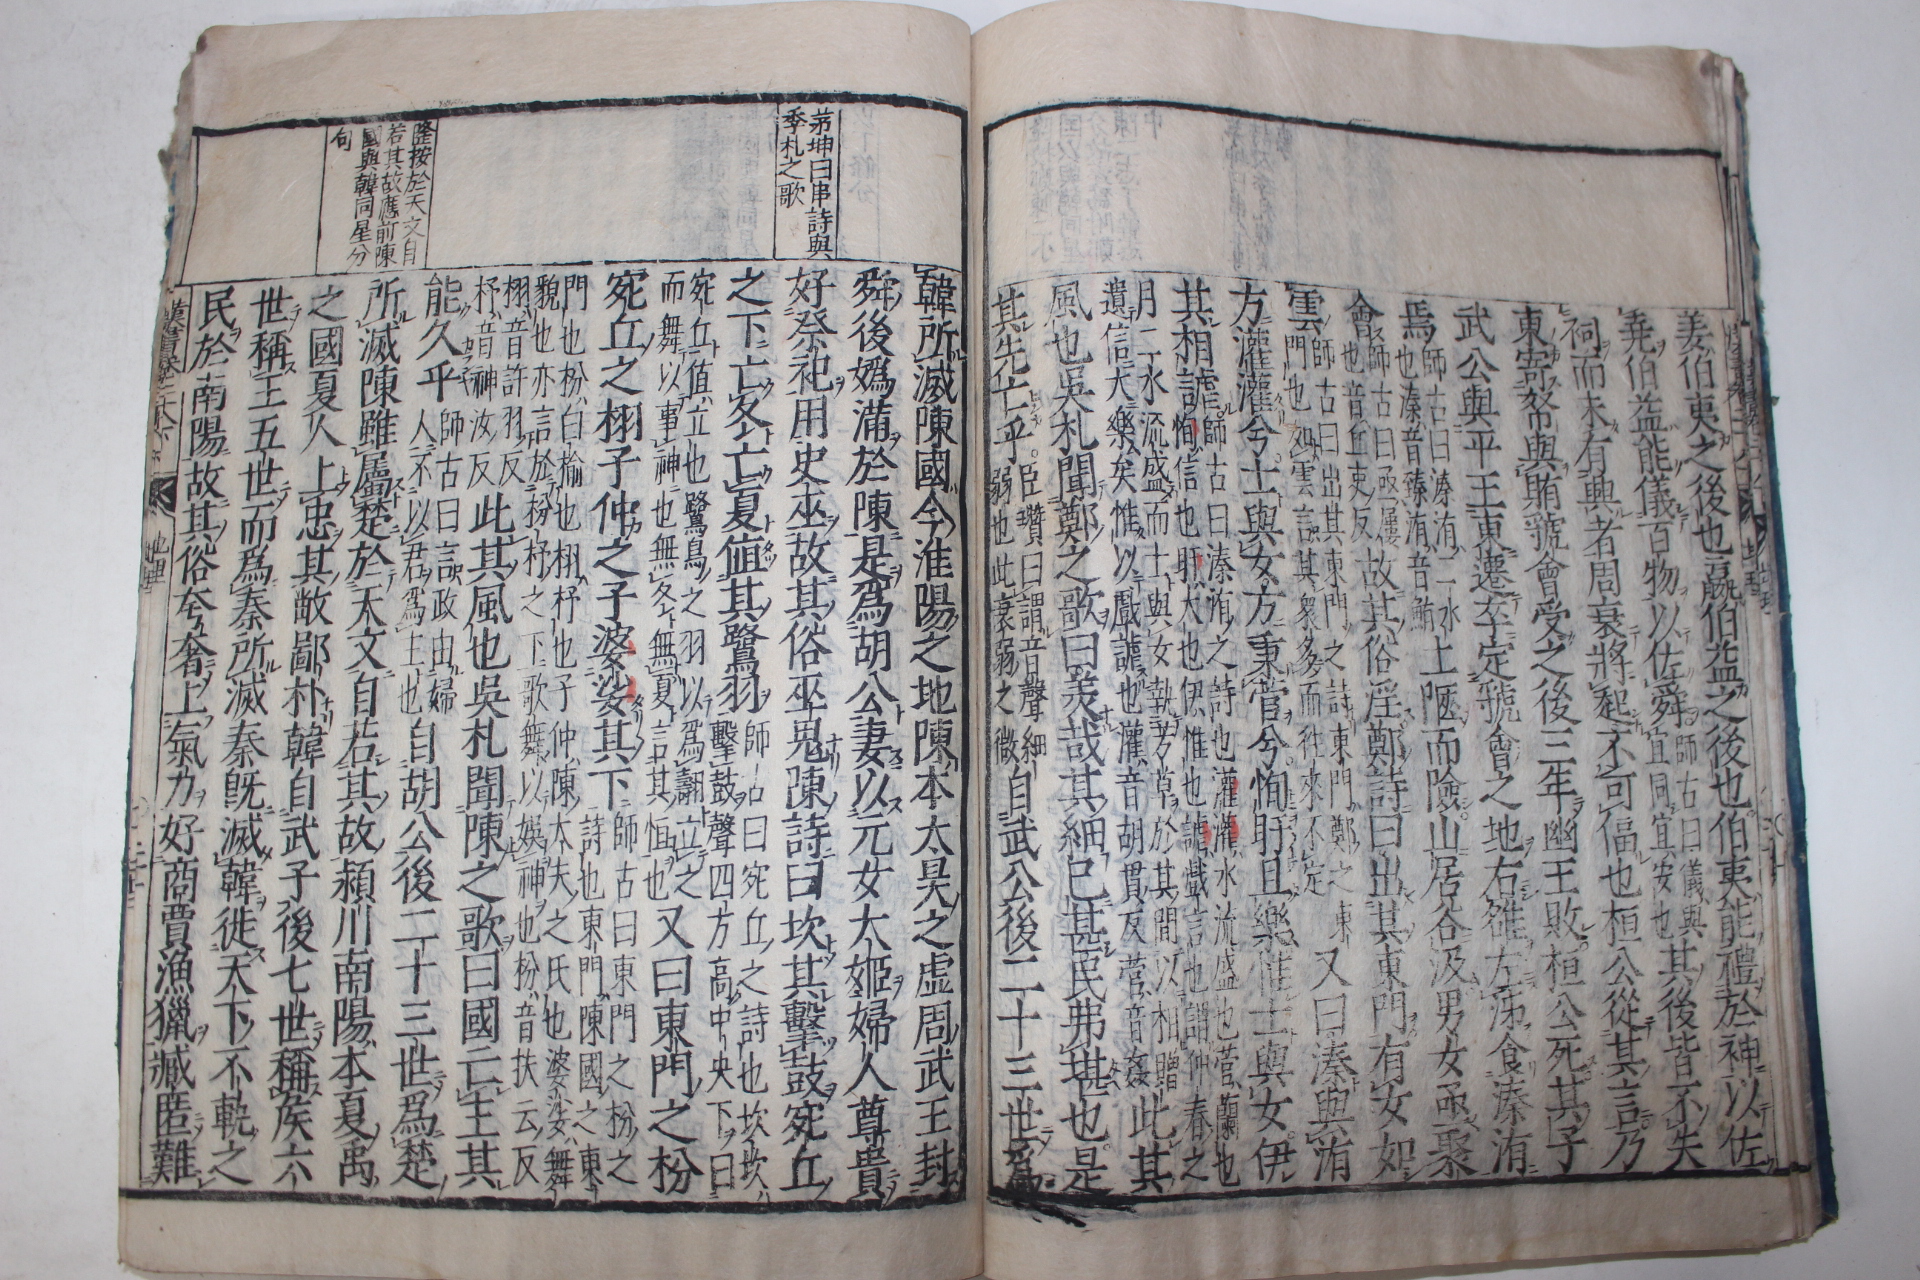 姜伯夷之後也嬴伯益之後也伯夷能禮於神以佐
堯伯益能儀百物以佐舜師古曰儀與宜同宜安也其後皆不失
祠而未有興者周衰將起不可偪也桓公從其言乃
東寄帑與賄虢會受之後三年幽王敗桓公死其子
武公與平王東遷卒定虢會之地右雒左泲食溱洧
焉師古曰溱洧二水也溱音臻洧音鮪土陿而險山居谷汲男女亟聚
會師古曰亟屢也音丘吏反故其俗淫鄭詩曰出其東門有女如
雲師古曰出其東門之詩東門鄭之東門也如雲言其衆多而往來不定又曰溱與洧
方灌灌兮士與女方秉菅兮恂盱且樂惟士與女伊
其相謔師古曰溱洧之詩也灌灌水流盛也菅蘭也恂信也盱大也伊惟也謔戲言也謂仲春之
月二水流盛而士與女執芳草於其間以相贈遺信大樂矣惟以戲謔也灌音胡貫反菅音姦此其
風也吳札聞鄭之歌曰美哉其細已甚民弗堪也是
其先亡乎臣瓚曰謂音聲細弱也此衰弱之徵自武公後二十三世爲
韓所滅陳國今淮陽之地陳本太昊之虛周武王封
舜後嬀滿於陳是爲胡公妻以元女大姬婦人尊貴
好祭祀用史巫故其俗巫鬼陳詩曰坎其擊鼓宛丘
之下亡冬亡夏值其鷺羽師古曰宛丘之詩也坎坎擊鼓聲四方高中央下曰
宛丘值立也鷺鳥之羽以爲翿立之而舞以事神也無冬無夏言其恒也又曰東門之枌
宛丘之栩子仲之子婆娑其下師古曰東門之枌之詩也東門陳國之東
門也枌白楡也栩杼也子仲陳大夫之氏也婆娑舞貌也亦言於枌杼之下歌舞以娛神也枌音扶云反
栩音許羽反杼音神汝反此其風也吳札聞陳之歌曰國亡主其
能久乎師古曰言政由婦人不以君爲主也自胡公後二十三世爲楚
所滅陳雖屬楚於天文自若其故潁川南陽本夏禹
之國夏人上忠其敝鄙朴韓自武子後七世稱侯六
世稱王五世而爲秦所滅秦旣滅韓徙天下不軌之
民於南陽故其俗夸奢上氣力好商賈漁獵藏匿難
茅坤曰串詩與
季札之歌
隆按於天文自
若其故應前陳
國與韓同星分
句